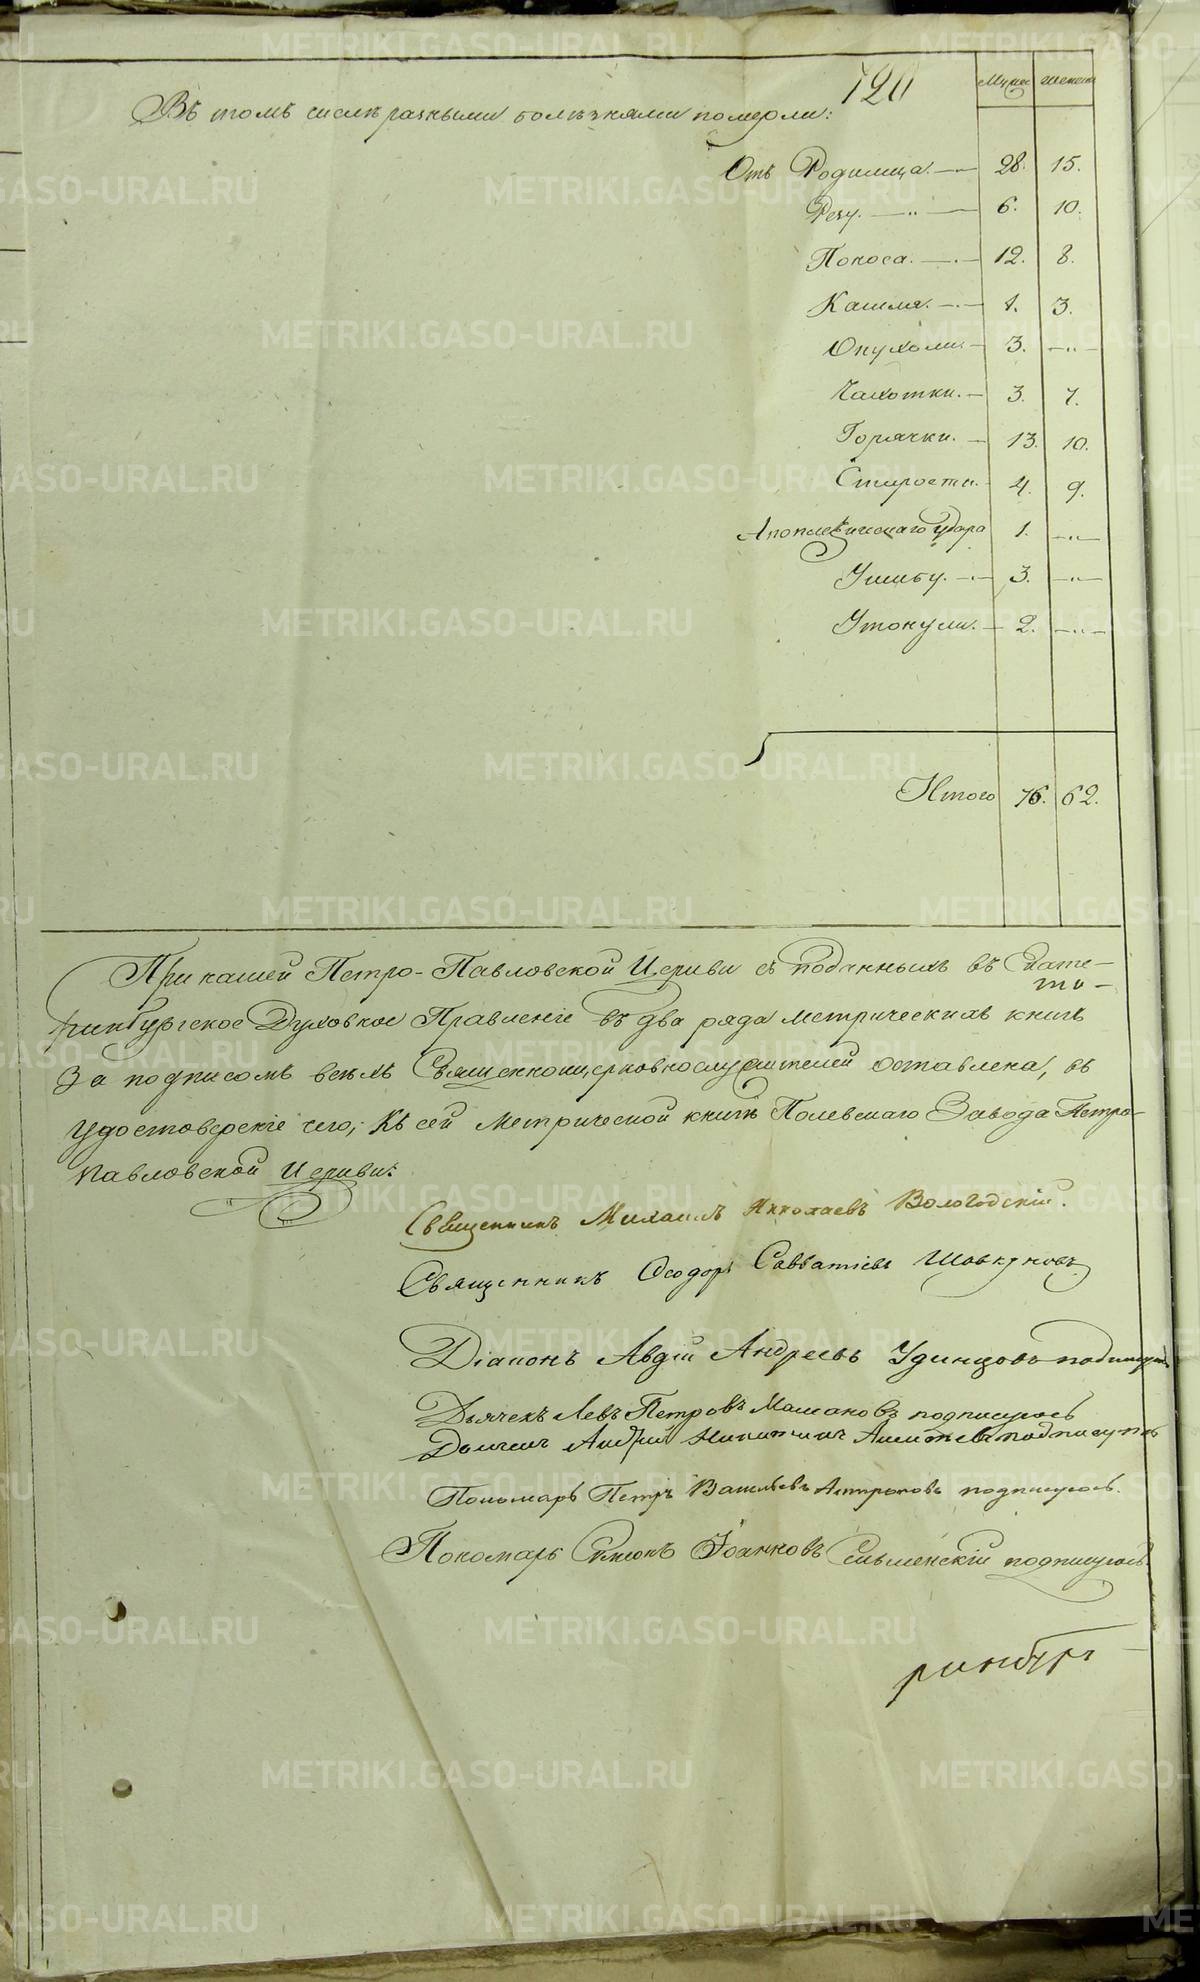 120
Мужес. Женска
Въ томъ числѣ разными болѣзнями померли:
Отъ Родимца. 28. 15.
Резу. 6. 10.
Поноса. 12. 8.
Кашля. 1. 3.
Опухоли. 3. —„—
Чахотки. 3. 7.
Горячки. 13. 10.
Старости. 4. 9.
Апоплексическаго удара 1. —„—
Ушибу. 3. —„—
Утонули. 2. —„—
Итого 76. 62.
При нашей Петро-Павловской Церкви съ поданныхъ въ Екате-
ринбургское Духовное Правленіе въ два ряда метрическихъ книгъ
За подписомъ всѣхъ Священноцерковнослужителей оставлена, въ
удостовереніе чего, къ сей метрической книгѣ Полевскаго Завода Петро-
павловской Церкви:
Священникъ Михаилъ Николаевъ Вологодскій.
Священникъ Ѳеодоръ Савватіевъ Шовкуновъ
Діаконъ Авдій Андреевъ Удинцовъ подпи
Дьячекъ Левъ Петровъ подписуюсь
Дьячекъ Андрей Никитинъ подписуюсь
Пономарь Петръ Васильевъ подписуюсь.
Пономарь Симеонъ Іоанновъ подписуюсь.
ринбург
METRIKI.GASO-URAL.RU